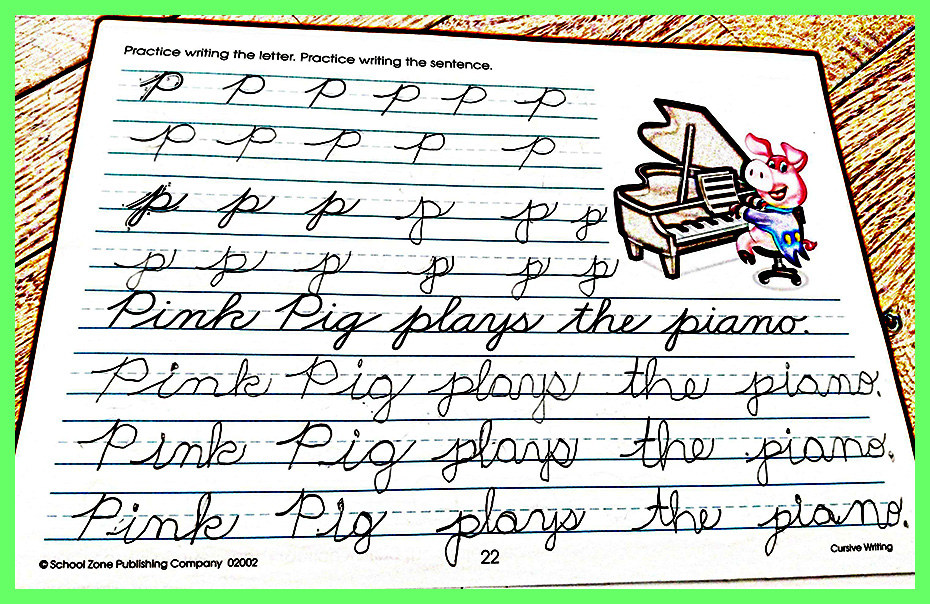 Practice writing the letter. Practice writing the sentence.
P P P P P P
P P P P P
p p p p p p
p p p p p p
Pink Pig plays the piano.
Pink Pig plays the piano.
Pink Pig plays the piano.
Pink Pig plays the piano.
© School Zone Publishing Company 02002 22 Cursive Writing